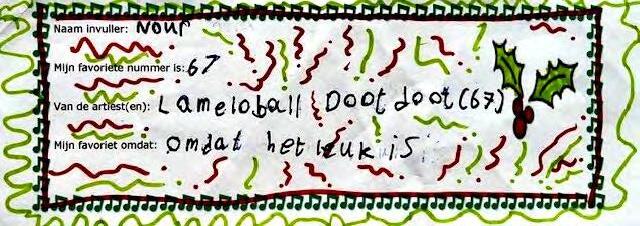 Naam invuller: Nour
Mijn favoriete nummer is: 67
Van de artiest(en): Lameloball Doot doot (67)
Mijn favoriet omdat: omdat het leuk is